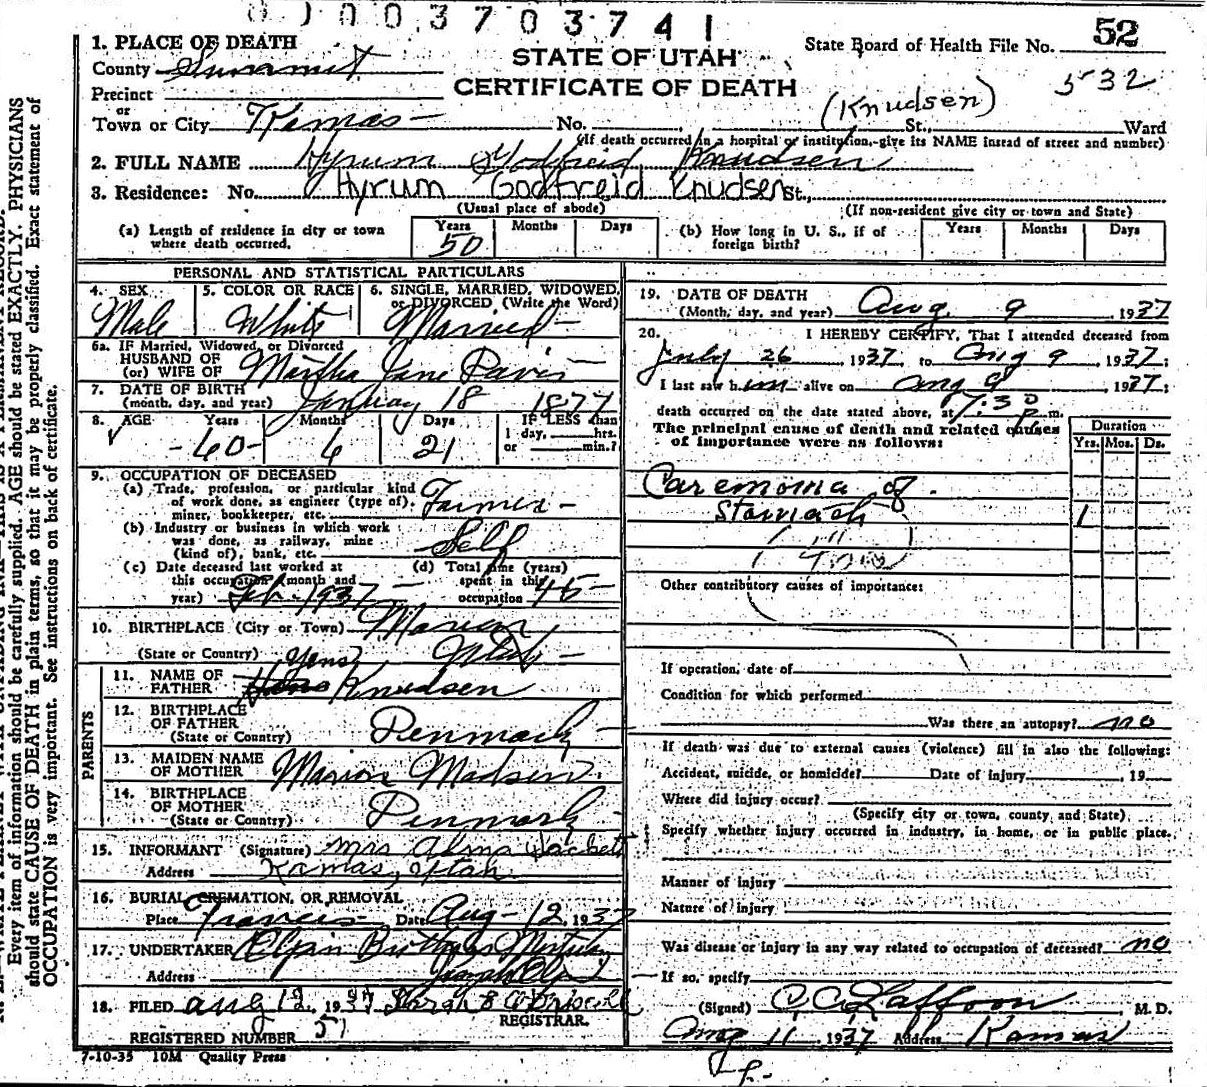 0003703741
52
1. PLACE OF DEATH
STATE OF UTAH
State Board of Health File No.
County Summit
CERTIFICATE OF DEATH
532
Precinct
or
(Knudsen)
Town or City Kamas No. St., Ward
(If death occurred in a hospital or institution, give its NAME insead of street and number)
2. FULL NAME Hyrum Godfreid Knudsen
3. Residence: No. Hyrum Godfreid Knudsen St.,
(Usual place of abode) (If non-resident give city or town and State)
(a) Length of residence in city or town where death occurred. Years 50 Months Days
(b) How long in U. S., if of foreign birth? Years Months Days
PERSONAL AND STATISTICAL PARTICULARS
4. SEX Male
5. COLOR OR RACE White
6. SINGLE, MARRIED, WIDOWED, or DIVORCED (Write the Word) Married
6a. IF Married, Widowed, or Divorced
HUSBAND OF
(or) WIFE OF Martha Jane Davis
7. DATE OF BIRTH
(month, day, and year) January 18 1877
8. AGE Years 60 Months 6 Days 21 IF LESS than
1 day, hrs.
or min.?
9. OCCUPATION OF DECEASED
(a) Trade, profession, or particular kind
of work done, as engineer (type of),
miner, bookkeeper, etc. Farmer
(b) Industry or business in which work
was done, as railway, mine
(kind of), bank, etc. Self
(c) Date deceased last worked at
this occupation (month and
year) Feb. 1937
(d) Total time (years)
spent in this
occupation 45
10. BIRTHPLACE (City or Town) Marion
(State or Country) Utah
PARENTS
11. NAME OF
FATHER Hans Knudsen
Jens
12. BIRTHPLACE
OF FATHER
(State or Country) Denmark
13. MAIDEN NAME
OF MOTHER Marion Madsen
14. BIRTHPLACE
OF MOTHER
(State or Country) Denmark
15. INFORMANT (Signature) Mrs Alma
Address Kamas, Utah
16. BURIAL, CREMATION, OR REMOVAL
Place Francis Date Aug-12, 1937
17. UNDERTAKER Olpin Brothers
Address
18. FILED Aug 12, 1937 Sarah E O'Driscoll
REGISTRAR.
REGISTERED NUMBER 51
7-10-35 10M Quality Press
19. DATE OF DEATH
(Month, day, and year) Aug 9 1937
20. I HEREBY CERTIFY, That I attended deceased from
July 26 1937, to Aug 9, 1937;
I last saw him alive on Aug 9 1937;
death occurred on the date stated above, at 7:30 p.m.
The principal cause of death and related causes
of importance were as follows:
Duration
Yrs. Mos. Ds.
Caremoma of
Stomach 1
Other contributory causes of importance:
If operation, date of
Condition for which performed
Was there an autopsy? no
If death was due to external causes (violence) fill in also the following:
Accident, suicide, or homicide? Date of injury , 19
Where did injury occur?
(Specify city or town, county, and State)
Specify whether injury occurred in industry, in home, or in public place.
Manner of injury
Nature of injury
Was disease or injury in any way related to occupation of deceased? no
If so, specify
(Signed) C. C. Laffoon, M. D.
Aug 11, 1937 Address Kamas
Every item of information should be carefully supplied. AGE should be stated EXACTLY. PHYSICIANS
should state CAUSE OF DEATH in plain terms, so that it may be properly classified. Exact statement of
OCCUPATION is very important. See instructions on back of certificate.